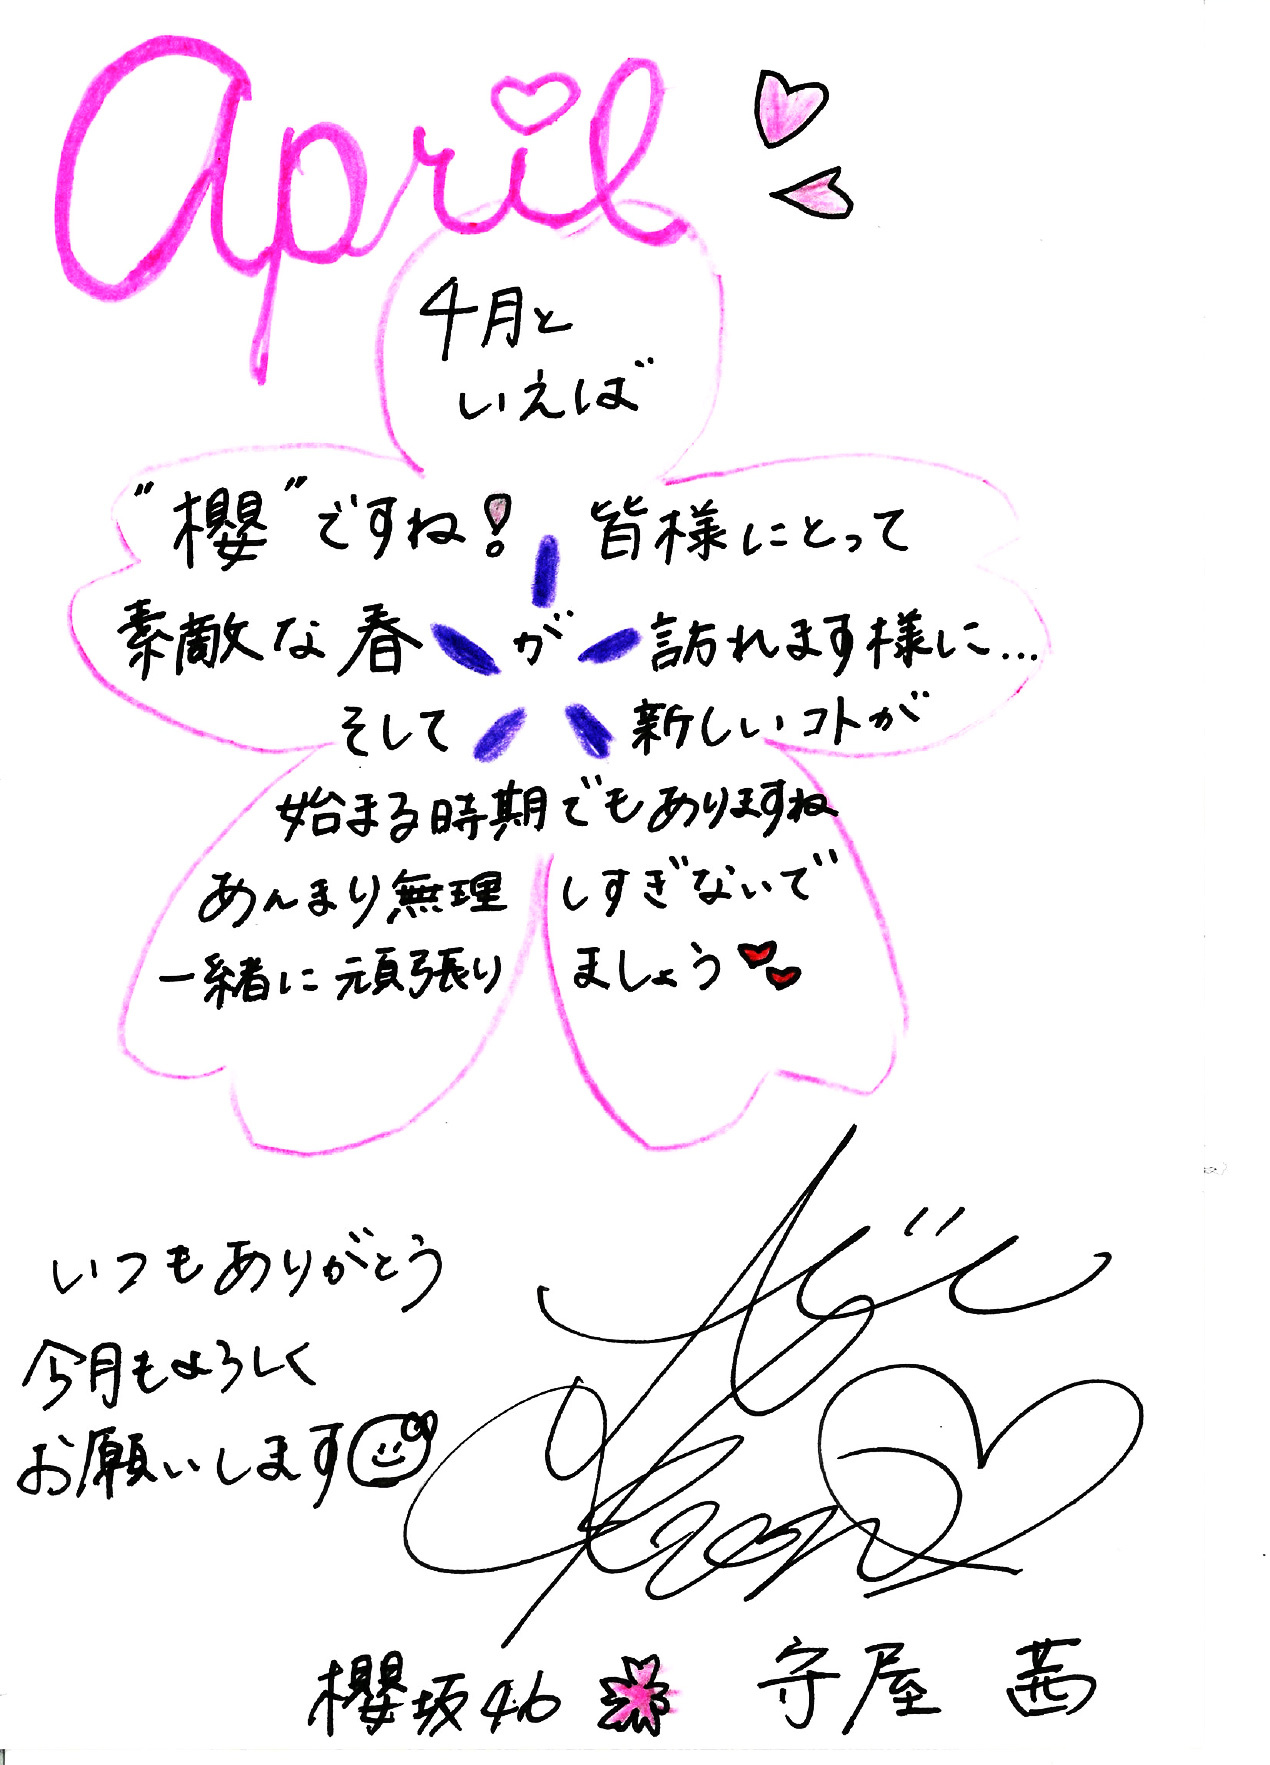 April
4月と
いえば
"櫻"ですね! 皆様にとって
素敵な春が訪れます様に...
そして 新しいコトが
始まる時期でもありますね
あんまり無理しすぎないで
一緒に頑張りましょう
いつもありがとう
今月もよろしく
お願いします
櫻坂46 守屋 茜